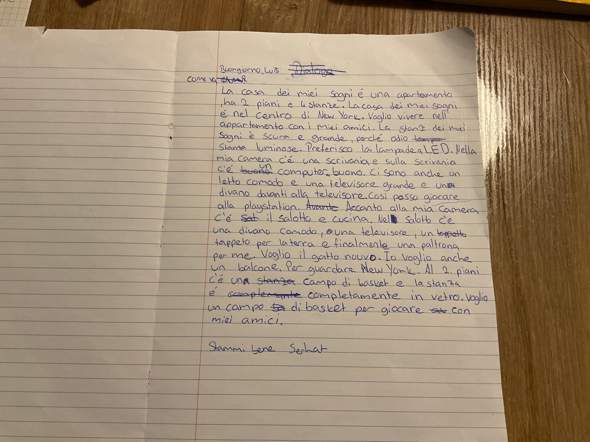 Buongiorno, Luis Dialogo
come va
La casa dei miei sogni é una apartamento
,ha 2 piani e 4 stanze. La casa dei miei sogni
é nel centro di New York. Voglio vivere nell'
appartamento con i miei amici. La stanz dei miei
Sogni é scura e grande, perché odio
stanze luminose. Preferisco la lampade a LED. Nella
mia camera c'é una scrivania e sulla scrivania
c'é un computer buono. Ci sono anche un
letto comodo e una televisore grande e un
divano davanti alla televisore. Cosi posso giocare
alla playstation. Accanto alla mia camera
c'é il salotto e cucina. Nel salotto c'é
una divano comodo, una televisore, un
tappeto per la terra e finalmente una paltrona
per me. Voglio il gatto nouvo. Io voglio anche
un balcone. Per guardare New York. Al 2. piani
c'é un campo di basket e la stanza
é completamente in vetro. Voglio
un campo di basket per giocare con
miei amici.
Stammi bene Serhat